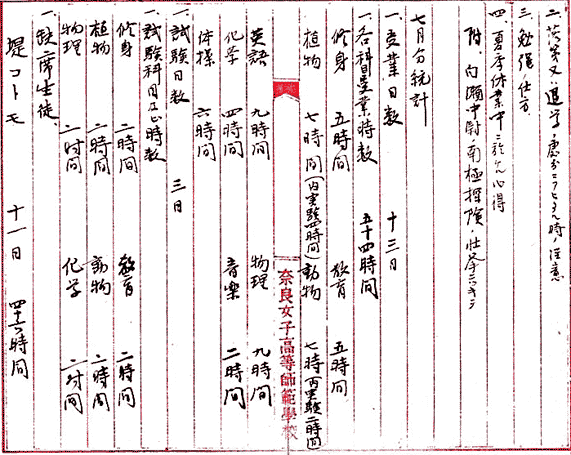 二、落第又ハ退学ノ処分ニアヒタル時ノ注意
三、勉強ノ仕方
四、夏季休業中ニ於ケル心得
附、白瀬中尉ノ南極探険ノ壮挙ニツキテ
七月分統計
一、授業日数 十三日
一、各科目授業時数 五十四時間
修身 五時間 教育 五時間
植物 七時間(内実験四時間) 動物 七時(内実験二時間)
奈良女子高等師範學校
英語 九時間 物理 九時間
化学 四時間 音楽 二時間
体操 六時間
一、試験日数 三日
一、試験科目及ビ時数
修身 二時間 教育 二時間
植物 二時間 動物 二時間
物理 二时间 化学 二时间
一、缺席生徒、
堤コトモ 十一日 四十六時間